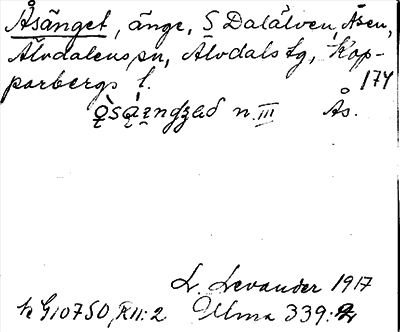 Åsänget, änge, S Dalälven, Åsen,
Älvdalens sn, Älvdals tg, Kop-
parbergs l. 174
n. III Ås.
L. Levander 1917
h G10750, XII:2 Ulma 339: